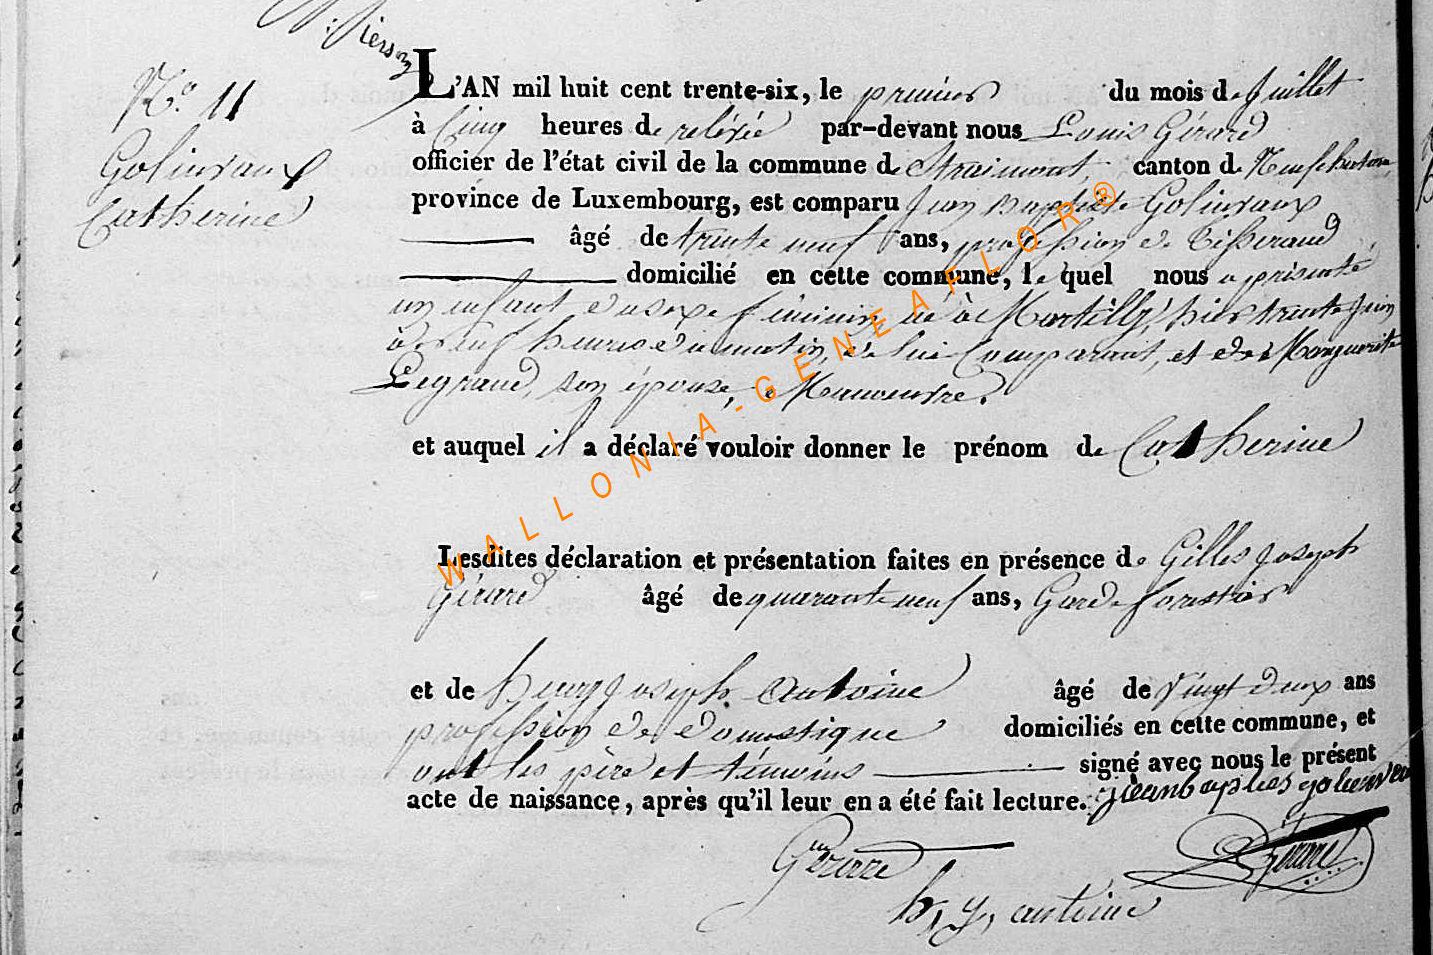 Pierson
N.° 11
Golinvaux
Catherine
L'AN mil huit cent trente-six, le premier du mois de Juillet
à Cinq heures de relévée par-devant nous Louis Gérard
officier de l'état civil de la commune de Straimont, canton de Neufchateau,
province de Luxembourg, est comparu Jean Baptiste Golinvaux
âgé de trente neuf ans, profession de Tisserand
domicilié en cette commune, le quel nous a présenté
un enfant du sexe féminin, né à Martilly, hier trente Juin
à neuf heures du matin, de lui Comparant, et de Marguerite
Legrand, son épouse, Manoeuvre.
et auquel il a déclaré vouloir donner le prénom de Catherine
Lesdites déclaration et présentation faites en présence de Gilles Joseph
Gérard âgé de quarante neuf ans, Garde forestier
et de henry Joseph Antoine âgé de Vingt deux ans
profession de domestique domiciliés en cette commune, et
ont les père et témoins signé avec nous le présent
acte de naissance, après qu'il leur en a été fait lecture.
Gérard
h, j, antoine
WALLONIA-GENEAFLOR®